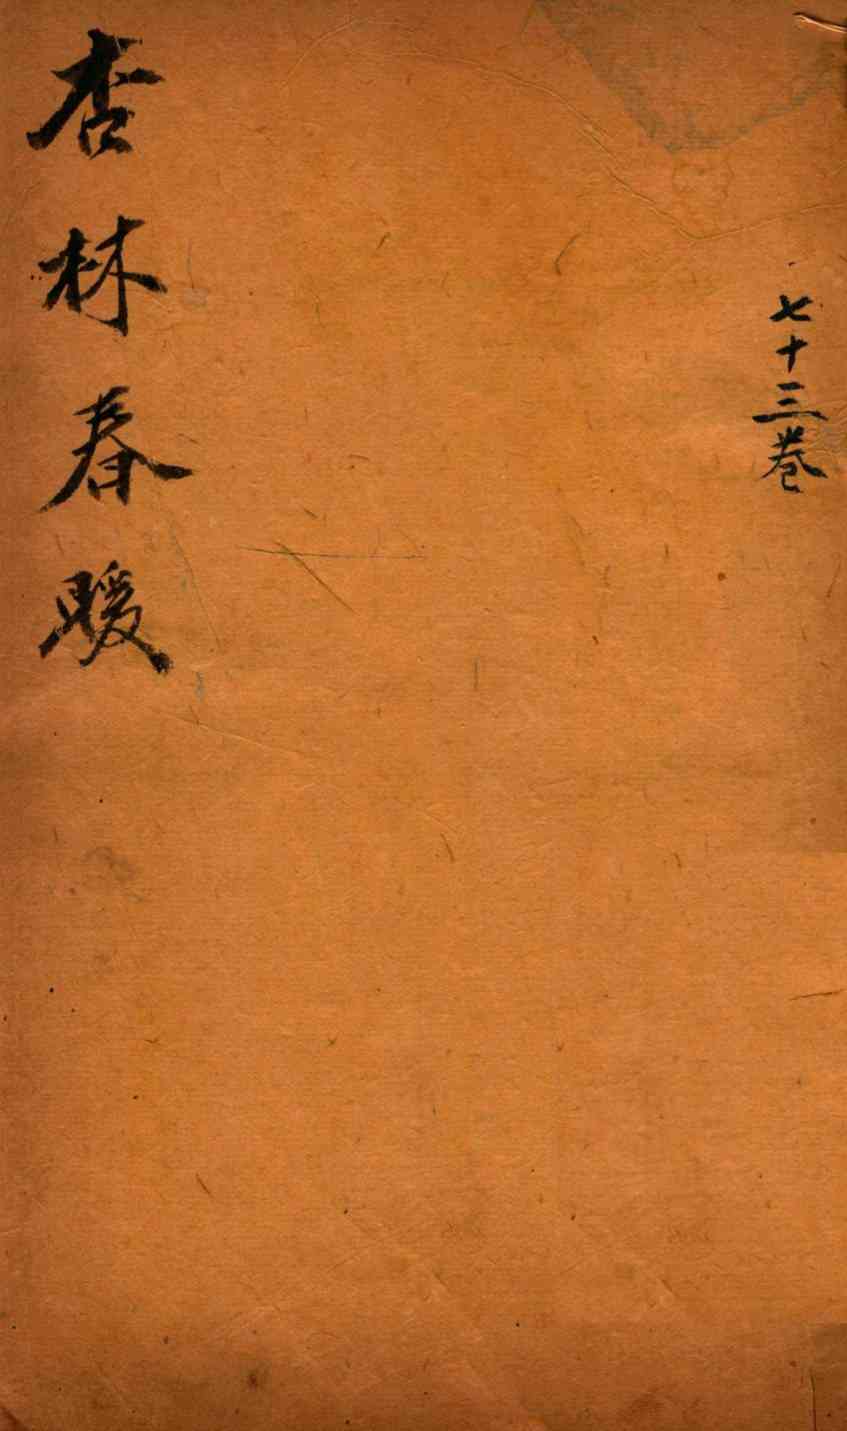 七十三卷
杏林春暖